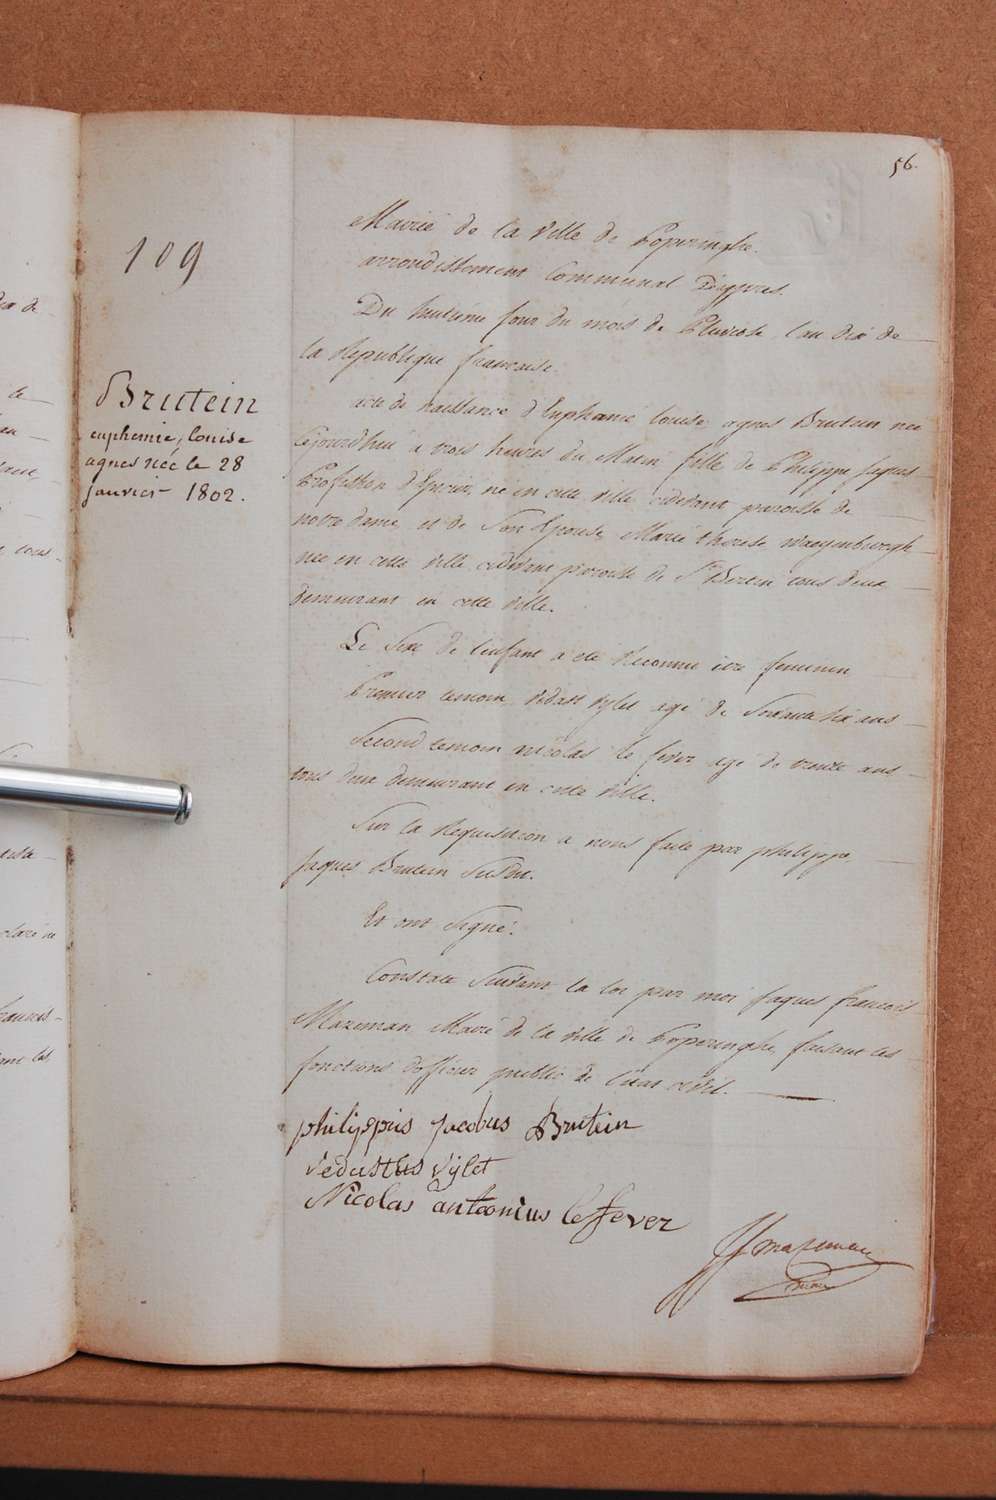 56.
109
Brutein
euphemie, louise
agnes née le 28
janvier 1802.
Mairie de la Ville de Poperinghe.
arrondissement Communal D'ypres.
Du huitième jour du mois de Pluviose, l'an dix de
la Republique francaise.
acte de naissance d'Euphemie louise agnes Brutein née
cejourdhui a trois heures du Matin fille de Philippe Jaques
Profession d'Epicier, né en cette ville cidevant paroisse de
notre dame, et de Son Epouse Marie therese
née en cette ville cidevant paroisse de St Bertin tous deux
demeurant en cette ville.
Le Sexe de l'enfant a été Reconnu être feminin
Premier temoin vedast vylet agé de Soixante six ans
Second temoin nicolas le fever agé de trente ans
tous deux demeurant en cette ville.
Sur la Requisition a nous faite par philippe
Jaques Brutein Susdit.
Et ont Signé.
Constaté Suivant la loi par moi Jaques francois
Mazeman Maire de la ville de Poperinghe, faisant les
fonctions d'officier public de l'etat civil.
philippus jacobus Brutein
vedustus vylet
Nicolas antoonius lefever
JJmazeman
dix de
tous
claré ne